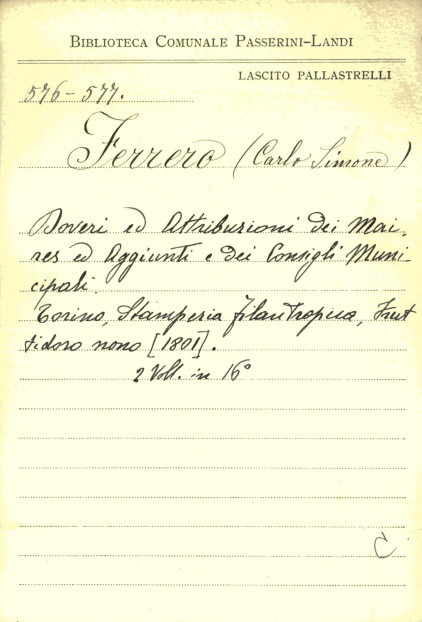 BIBLIOTECA COMUNALE PASSERINI-LANDI
LASCITO PALLASTRELLI
576-577.
Ferrero (Carlo Simone)
Doveri ed Attribuzioni dei Mai-
res ed Aggiunti e dei Consigli Muni-
cipali.
Torino, Stamperia filantropica, Frut
tidoro nono [1801].
2 Voll. in 16°
C